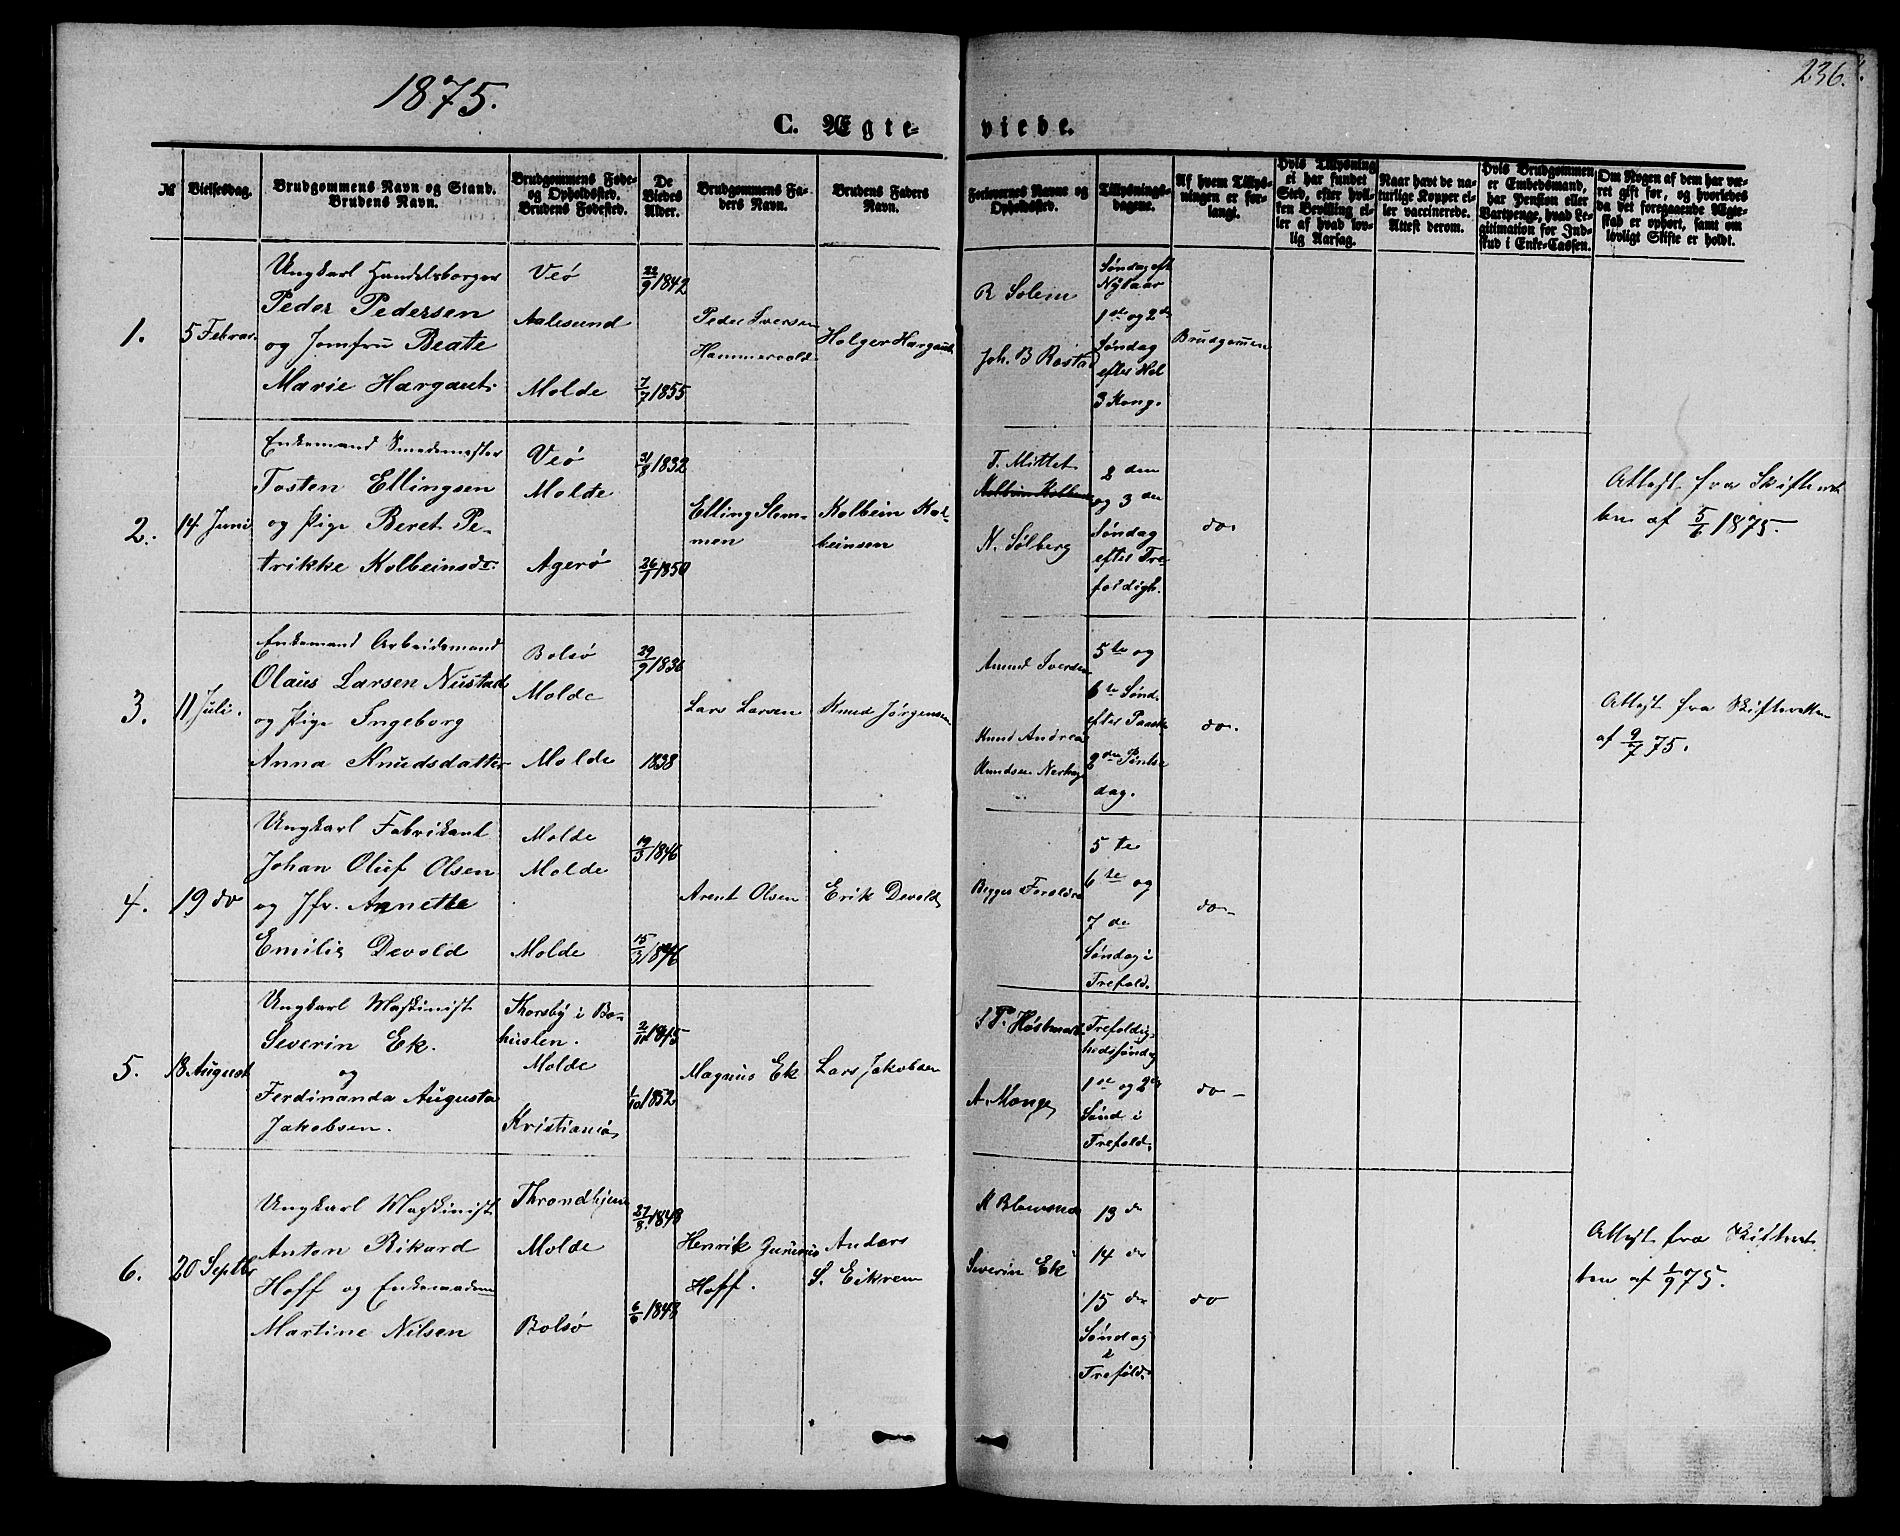 1875.
236.
C. Ægteviede.
№
Vielsesdag.
Brudgommens Navn og Stand.
Brudens Navn.
Brudgommens Føde-
og Opholdssted.
Brudens Fødested.
De
Viedes
Alder.
Brudgommens Fa-
ders Navn.
Brudens Faders
Navn.
Forlovernes Navne og
Opholdssted.
Tillysnings-
dagene.
Af hvem Tillys-
ningen er for-
langt.
Hvis Tillysning
ei har fundet
Sted, efter hvil-
ken Bevilling el-
ler af hvad lov-
lig Aarsag.
Naar havt de na-
turlige Kopper el-
ler vaccinerede.
Attest derom.
Hvis Brudgommen
er Embedsmand,
har Pension eller
Vartpenge, hvad Le-
gitimation for Ind-
skud i Enke-Cassen.
Om Nogen af dem har væ-
ret gift før, og hvorledes
da det foregaaende Ægte-
skab er ophørt, samt om
lovligt Skifte er holdt.
1.
5 Februar.
Ungkarl Handelsborger
Peder Pedersen
og Jomfru Beate
Marie Hargaut.
Veø
Aalesund
Molde
22/9 1842
7/7 1855
Peder Iversen
Hammervold
Holger Hargaut
R Solem
Joh. B Rostad
Søndag eft
Nytaar
1ste og 2den
Søndag
efter Hel
3 Kong.
Brudgommen
2.
14 Juni
Enkemand Smedemester
Tosten Ellingsen
og Pige Beret Pe-
trikke Kolbeinsdr.
Veø
Molde
Agerø
31/8 1832
26/7 1850
Elling Slem-
men
Kolbein Kol-
beinsen
T. Mittet
N. Sølberg
2 den
og 3 den
Søndag
efter Tre
foldigh.
do.
Attest fra Skifteret
ten af 5/6 1875.
3.
11 Juli.
Enkemand Arbeidsmand
Olaus Larsen Nustad
og Pige Ingeborg
Anna Knudsdatter
Bolsø
Molde
Molde
29/9 1836
1838
Lars Larsen
Knud Jørgensen
Amund Iversen
Knud Andreas
Knudsen Nerhag
5 te og
6 te Sønd.
efter Paaske
2den Pintse
dag.
do.
Attest fra Skifteretten
af 9/7 75.
4.
19 do
Ungkarl Fabrikant
Johan Oluf Olsen
og Jfr. Annette
Emilie Devold
Molde
Molde
Molde
19/3 1846
15/3 1846
Arent Olsen
Erik Devold
Begges Forældre
5 te
6 te og
7 de
Søndag i
Trefold.
do.
5.
18 August
Ungkarl Maskinist
Severin Ek.
og
Ferdinanda Augusta
Jakobsen.
Thorsby i Bo-
huslen.
Molde
Kristiania
2/11 1845
1/10 1852
Magnus Ek
Lars Jakobsen
S P. Høstmark
A. Monge
Trefoldig-
hedssøndag
1ste og 2den
Sønd i
Trefold.
do
6.
20 Septbr
Ungkarl Maskinist
Anton Rikard
Hoff og Enkemadam
Martine Nilsen
Throndhjem
Molde
Bolsø
27/3 1843
6/6 1843
Henrik Junius
Hoff.
Anders
S. Eikrem
Severin Ek
13 de
14 de
15 de
Søndag
i
Trefold.
do
Attest fra Skifteret
ten af 1/9 75.